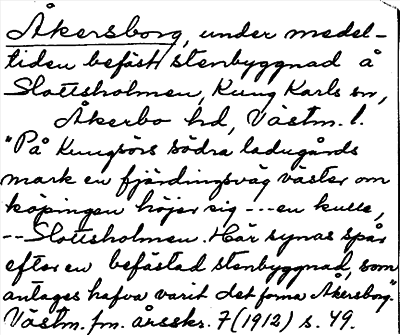 Åkersborg, under medel-
tiden befäst stenbyggnad å
Slottsholmen, Kung Karls sn,
Åkerbo hd, Västm. l.
"På Kungsörs södra ladugårds
mark en fjärdingsväg väster om
köpingen höjer sig --- en kulle,
-- Slottsholmen. Här synas spår
efter en befästad stenbyggnad, som
antages hafva varit det forna Åkersborg."
Västm. fm. årsskr. 7 (1912) s. 49.